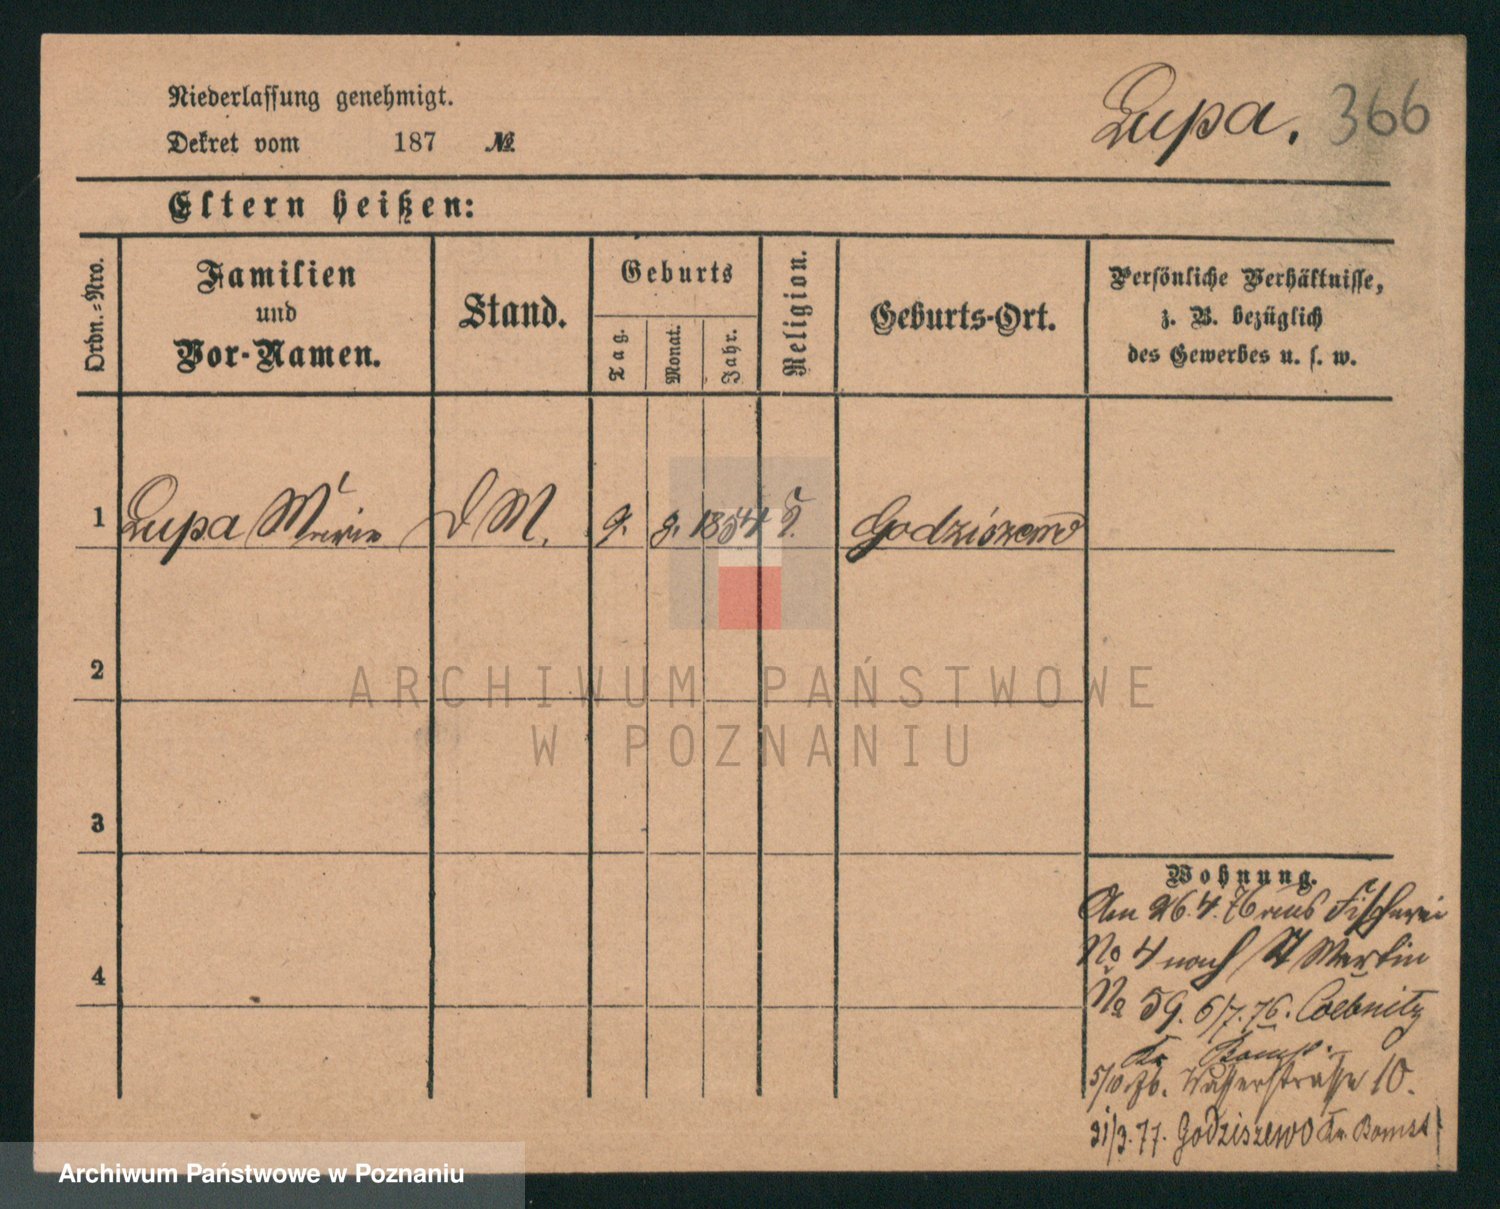 Niederlassung genehmigt.
Dekret vom 187 №
Lupa. 366
Eltern heißen:
Ordn.-Nro.
Familien
und
Vor-Namen.
Stand.
Geburts
Tag.
Monat.
Jahr.
Religion.
Geburts-Ort.
Persönliche Verhältnisse,
z. B. bezüglich
des Gewerbes u. s. w.
1 Lupa Marie D M. 9. 9. 1854
2
3
4
Wohnung.
Am 26.4.76 aus Fischerei
No 4 nach St Martin
No 59. 6/7.76.
Kr Bomst.
5/10.76. Wasserstrasse 10.
21/3.77. Godziszewo Kr. Bomst
ARCHIWUM PAŃSTWOWE
W POZNANIU
Archiwum Państwowe w Poznaniu